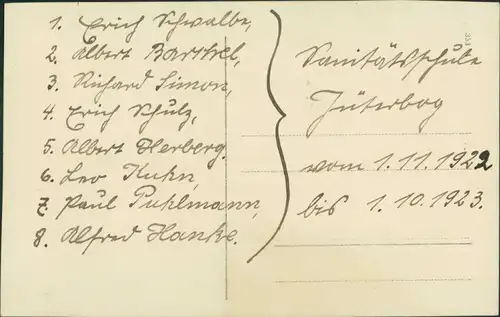 1. Erich Schwalbe,
2. Albert Barthel,
3. Richard Simon,
4. Erich Schulz,
5. Albert Herberg.
6. Leo Kuhn,
7. Paul Puhlmann,
8. Alfred Hanke.
Sanitätsschule
Jüterbog
vom 1.11.1922
bis 1.10.1923.